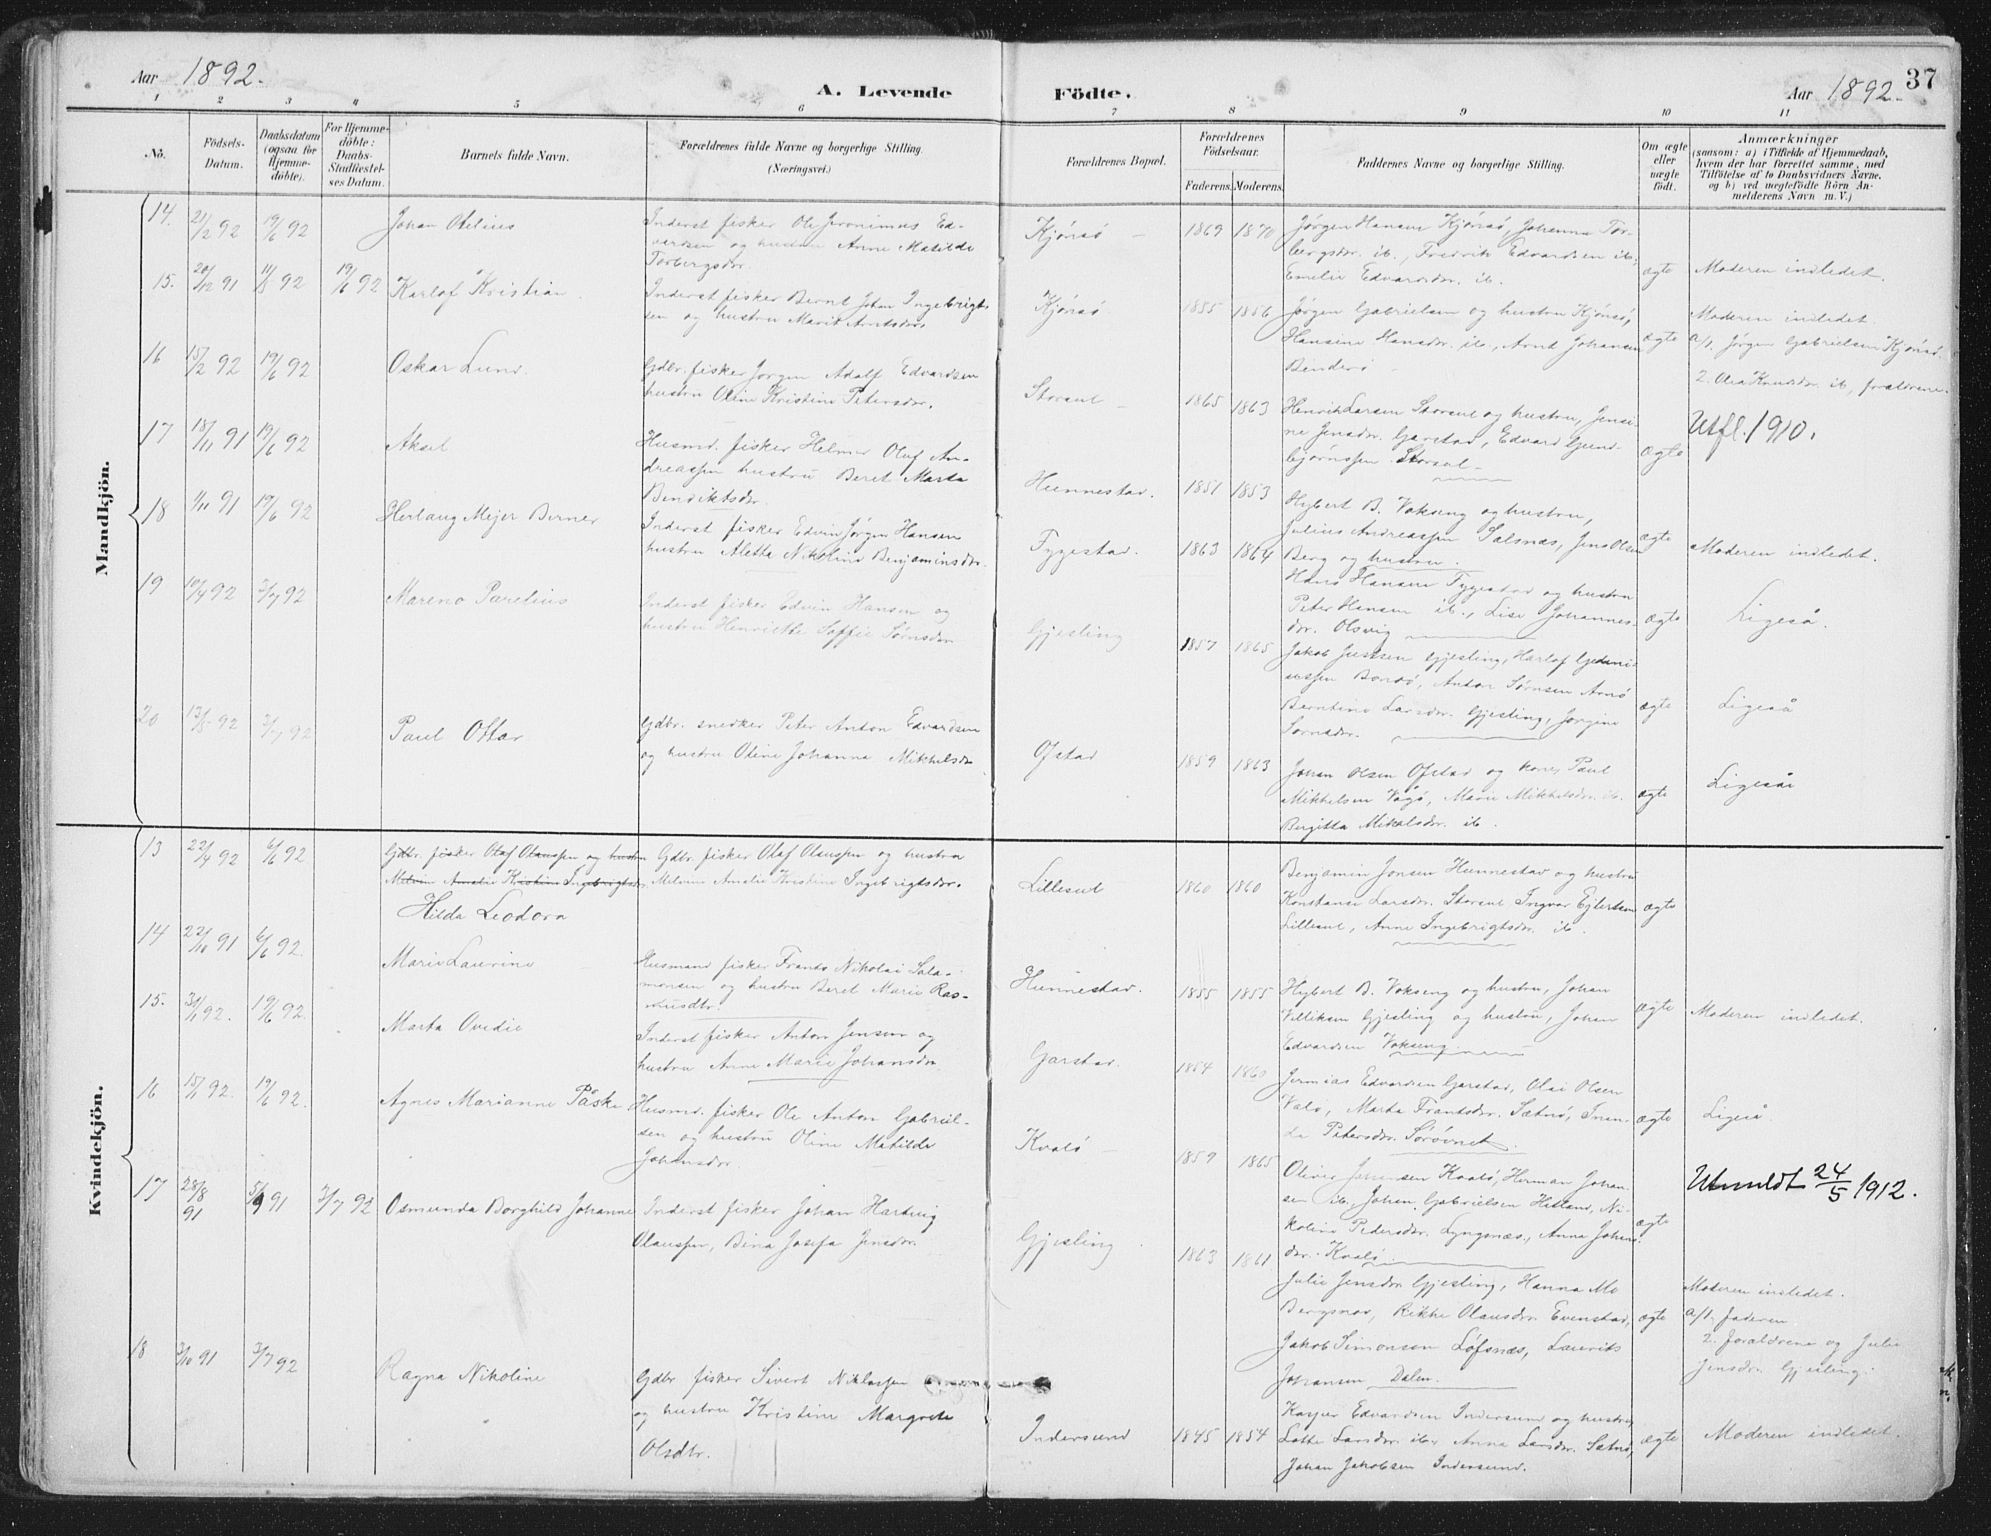 Aar 1892.
A. Levende Födte.
Aar 1892.
37
1 2 3 4 5 6 7 8 9 10 11
No.
Födsels-
Datum.
Daabsdatum
(ogsaa for
Hjemme-
döbte).
For Hjemme-
döbte:
Daabs-
Stadfæstel-
ses Datum.
Barnets fulde Navn.
Forældrenes fulde Navne og borgerlige Stilling.
(Næringsvei.)
Forældrenes Bopæl.
Forældrenes
Födselsaar.
Faderens. Moderens.
Faddernes Navne og borgerlige Stilling.
Om ægte
eller
uægte
födt.
Anmærkninger
(saasom: a) i Tilfælde af Hjemmedaab,
hvem der har forrettet samme, med
Tilföielse af to Daabsvidners Navne,
og b) ved uægtefödte Börn An-
melderens Navn m. V.)
Mandkjön.
14. 21/2 92 19/6 92 Johan Otelius
Inderst fisker Ole Jeronimus Ed-
vardsen og hustru Anne Matilde
Torbergsdr.
Kjönsö 1869 1870
Jørgen Hansen Kjönsö, Johanna Tor-
bergsdr. ib., Fredrik Edvardsen ib.,
Emelie Edvardsdr. ib.
ægte
Moderen indledet.
15. 20/12 91 19/6 92 Karlof Kristian
Inderst fisker Bernt Johan Ingebrigt-
sen og hustru Marit Arntsdr.
Kjönsö 1855 1856
Jørgen Gabrielsen og hustru Kjönsö,
Hansine Hansdr. ib., Arnt Johansen
Binderö
ægte
Moderen indledet.
a/1. Jørgen Gabrielsen Kjönsö.
2. Olea Knudsdr. ib., forældrene.
16 15/2 92 19/6 92 Oskar Lund.
Gdbr. fisker Jørgen Adolf Edvardsen
hustru Oline Kristine Petersdr.
Storsul 1865 1863
Henrik Larsen Storsul og hustru, Jensi-
ne Jensdr. Garstad, Edvard Gund-
bjørnssen Storsul
ægte
Utfl. 1910.
17 18/11 91 19/6 92 Aksel
Husmd. fisker Helmer Oluf An-
dreassen hustru Beret Marta
Bendiktsdr.
Hunnestad. 1851 1853
Hybert B. Vokseng og hustru,
Julius Andreassen Salsnæs, Jens Olsen
Berg og hustru.
ægte
Moderen indledet.
18 1/11 91 19/6 92 Herlaug Mejer Berner
Inderst fisker Edvin Jørgen Hansen
hustru Aletta Nikoline Benjaminsdr.
Tygestad. 1863 1864
Hans Hansen Tygestad og hustru
Peter Hansen ib., Lise Johannes-
dr. Olsvig
ægte
Ligeså.
19 19/4 92 3/7 92 Mareno Parelius
Inderst fisker Edvin Hansen og
hustru Henriette Soffie Sørnsdr.
Gjesling 1857 1865
Jakob Justsen Gjesling,
Anton Sørnsen Arnö
Berntine Larsdr. Gjesling, Jørgine
Sørnsdr.
ægte
Ligeså
20 13/5 92 3/7 92 Paul Ottar
Gdbr. snedker Peter Anton Edvardsen
og hustru Oline Johanna Mikkelsdr.
Ofstad 1859 1863
Johan Olsen Ofstad og kone, Paul
Mikkelsen Vågö, Marie Mikkelsdr. ib.
Bergitta Mikalsdr. ib.
ægte
Ligeså
Kvindekjön.
13 22/4 92 6/6 92
Gdbr. fisker Olaf Olaussen og hustru
Melvine Amalie Kristine Ingebrigtsdr.
Hilda Leodora
Gdbr. fisker Olaf Olaussen og hustru
Melvine Amalie Kristine Ingebrigtsdr.
Lillesul 1860 1860
Benjamin Jonsen Hunnestad og hustru
Konstanse Larsdr. Storsul Ingvar Ejlertsen
Lillesul, Anne Ingebrigtsdr. ib.
ægte
14 22/10 91 6/6 92 Marie Laurine
Husmand fisker Frants Nikolai Sala-
monsen og hustru Beret Marie Ras-
musdtr.
Hunnestad. 1855 1855
Hybert B. Vokseng og hustru, Johan
Villiksen Gjesling og hustru, Johan
Edvardsen Vokseng.
ægte
Moderen indledet.
15. 31/1 92. 19/6 92. Marta Ovidie
Inderst fisker Anton Jensen og
hustru Anne Marie Johansdr.
Garstad. 1854 1860
Jermias Edvardsen Garstad, Olai Olsen
Valö, Marta Frantsdr. Sætnö, Inan-
da Petersdr. Sörövnet.
ægte
Ligeså
16 15/1 92. 19/6 92. Agnes Marianne Påske
Husmd. fisker Ole Anton Gabriel-
sen og hustru Oline Matilde
Johansdr.
Kvalö 1859 1865
Oliver Johansen Kvalö, Herman Johan-
sen ib., Johan Gabrielsen Hilland, Ni-
koline Pedersdr. Lyngsnæs, Anna Johans-
dr. Kvalö
ægte
Utmeldt 24/5 1912.
17 28/8 91 5/9 91 3/7 92 Osmunda Borghild Johanne
Inderst fisker Johan Hartvig
Olaussen, Bina Josefa Jensdr.
Gjesling 1863 1861
Julie Jensdr. Gjesling, Hanna Mo
Bergsnov, Rikke Olausdr. Evenstad,
Jakob Simonsen Løfsnæs, Laurits
Johansen Dalen.
ægte
Moderen indledet.
a/1. Faderen
2. forældrene og Julie
Jensdr. Gjesling.
18 3/10 91 3/7 92 Ragna Nikoline
Gdbr. fisker Sivert Niklassen
og hustru Kristine Margrete
Olsdtr.
Indersund 1845 1854
Kasper Edvardsen Indersund og hustru
Lotte Larsdr. ib., Anna Larsdr. Sætnö,
Johan Jakobsen Indersund.
ægte
Moderen indledet.